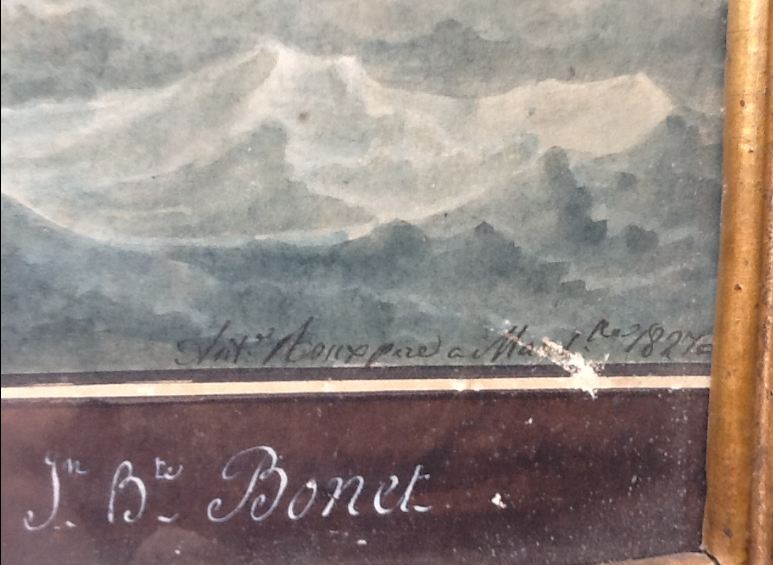 Ant.e Roux pere a Mar 1827
Jn Bte Bonet